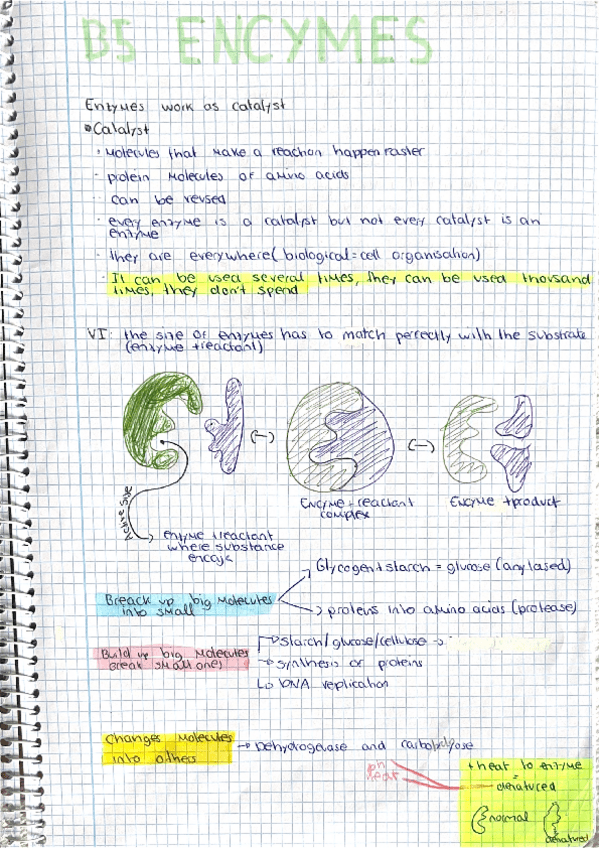 B5 ENCYMES
Enzymes work as catalyst
Catalyst
· Molecules that make a reaction happen faster
· protein molecules of amino acids
· can be reused
· every enzyme is a catalyst but not every catalyst is an
enzyme
· they are everywhere (biological = cell organisation)
· It can be used several times, they can be used thousand
times, they don't spend
VI: the site of enzymes has to match perfectly with the substrate
(enzyme + reactant)
Active site
ENCYME - reactant
complex
ENCYME + product
enzyme + reactant
where substance
Glycogen + starch = glucose (amylased)
Breack up big Molecules
into small
proteins into amino acids (protease)
Build up big Molecules
Break small ones
starch/glucose/cellulose →
synthesis of proteins
DNA replication
Changes Molecules
into others
Dehydrogelase and
pH
heat
+ heat to enzyme
=
denatured
normal
denatured